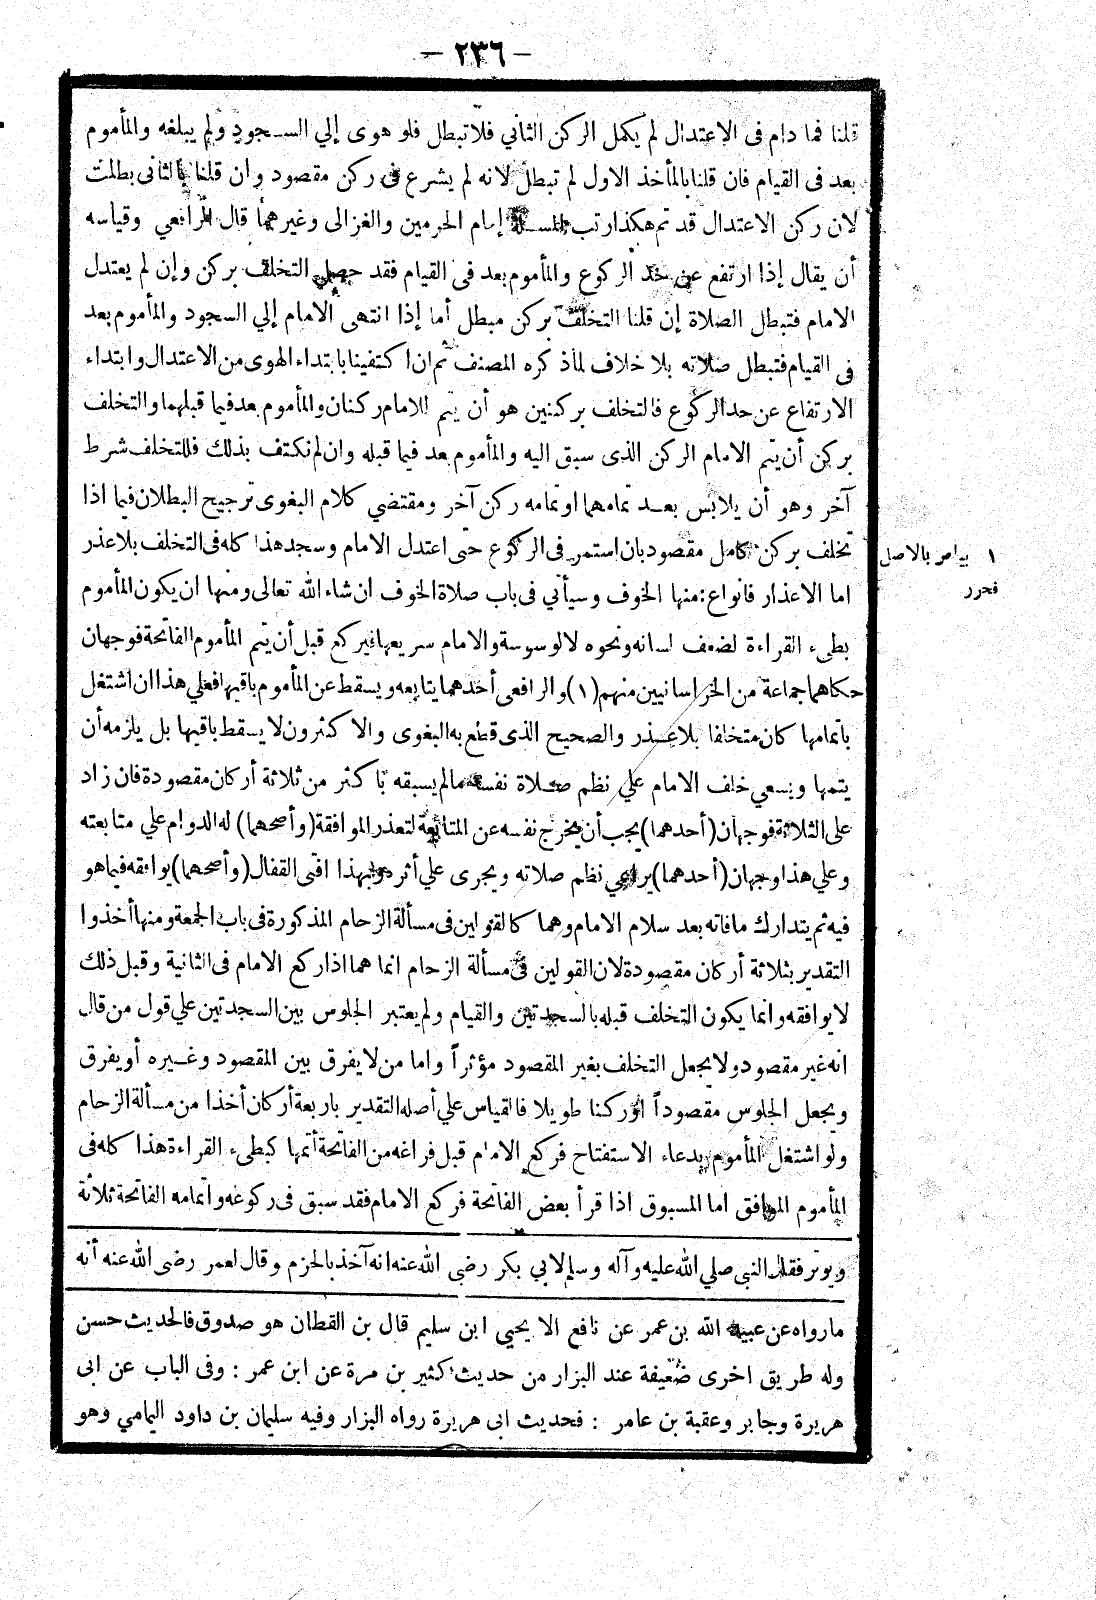 — ٢٣٦ —
قلنا فما دام فى الاعتدال لم يكمل الركن الثاني فلا تبطل فلو هوى إلي السجود ولم يبلغه والمأموم
بعد فى القيام فان قلنا بالمأخذ الاول لم تبطل لانه لم يشرع فى ركن مقصود وان قلنا بالثانى بطلت
لان ركن الاعتدال قد تم هكذا رتب المسألة إمام الحرمين والغزالى وغيرهما قال الرافعي وقياسه
أن يقال إذا ارتفع عن حد الركوع والمأموم بعد فى القيام فقد حصل التخلف بركن وإن لم يعتدل
الامام فتبطل الصلاة إن قلنا التخلف بركن مبطل أما إذا انتهى الامام إلي السجود والمأموم بعد
فى القيام فتبطل صلاته بلا خلاف لما ذكره المصنف ثم ان اكتفينا بابتداء الهوى من الاعتدال وابتداء
الارتفاع عن حد الركوع فالتخلف بركنين هو أن يتم للامام ركنان والمأموم بعد فيما قبلهما والتخلف
بركن أن يتم الامام الركن الذى سبق اليه والمأموم بعد فيما قبله وان لم نكتف بذلك فللتخلف شرط
آخر وهو أن يلابس بعد تمامهما او تمامه ركن آخر ومقتضي كلام البغوى ترجيح البطلان فيما اذا
تخلف بركن كامل مقصود بان استمر فى الركوع حتى اعتدل الامام وسجد هذا كله فى التخلف بلا عذر
اما الاعذار فانواع: منها الخوف وسيأتي فى باب صلاة الخوف ان شاء الله تعالى ومنها ان يكون المأموم
بطىء القراءة لضعف لسانه ونحوه لا لوسوسة والامام سريعها فيركع قبل أن يتم المأموم الفاتحة فوجهان
حكاهما جماعة من الخراسانيين منهم (١) والرافعى أحدهما يتابعه ويسقط عن المأموم باقيها فعلي هذا ان اشتغل
باتمامها كان متخلفا بلا عذر والصحيح الذى قطع به البغوى والاكثرون لا يسقط باقيها بل يلزمه أن
يتمها ويسعي خلف الامام علي نظم صلاة نفسه مالم يسبقه باكثر من ثلاثة أركان مقصودة فان زاد
على الثلاثة فوجهان (أحدهما) يجب أن يخرج نفسه عن المتابعة لتعذر الموافقة (وأصحهما) له الدوام علي متابعته
وعلي هذا وجهان (أحدهما) يراعي نظم صلاته ويجرى علي أثره وبهذا افتى القفال (وأصحهما) يوافقه فيما هو
فيه ثم يتدارك ما فاته بعد سلام الامام وهما كالقولين فى مسألة الزحام المذكورة فى باب الجمعة ومنها أخذوا
التقدير بثلاثة أركان مقصودة لان القولين فى مسألة الزحام انما هما اذا ركع الامام فى الثانية وقبل ذلك
لا يوافقه وانما يكون التخلف قبله بالسجدتين والقيام ولم يعتبر الجلوس بين السجدتين علي قول من قال
انه غير مقصود ولا يجعل التخلف بغير المقصود مؤثراً واما من لا يفرق بين المقصود وغيره أو يفرق
ويجعل الجلوس مقصوداً او ركنا طويلا فالقياس علي أصله التقدير باربعة أركان أخذا من مسألة الزحام
ولو اشتغل المأموم بدعاء الاستفتاح فركع الامام قبل فراغه من الفاتحة أتمها كبطىء القراءة هذا كله فى
المأموم الموافق اما المسبوق اذا قرأ بعض الفاتحة فركع الامام فقد سبق فى ركوعه واتمامه الفاتحة ثلاثة
١ بياض بالاصل
فحرر
ويوتر فقال النبى صلي الله عليه وآله وسلم لابي بكر رضى الله عنه انه آخذ بالحزم وقال لعمر رضى الله عنه أنه
مارواه عن عبيد الله بن عمر عن نافع الا يحيي ابن سليم قال بن القطان هو صدوق فالحديث حسن
وله طريق اخرى ضعيفة عند البزار من حديث كثير بن مرة عن ابن عمر : وفى الباب عن ابى
هريرة وجابر وعقبة بن عامر : فحديث ابى هريرة رواه البزار وفيه سليمان بن داود اليمامي وهو